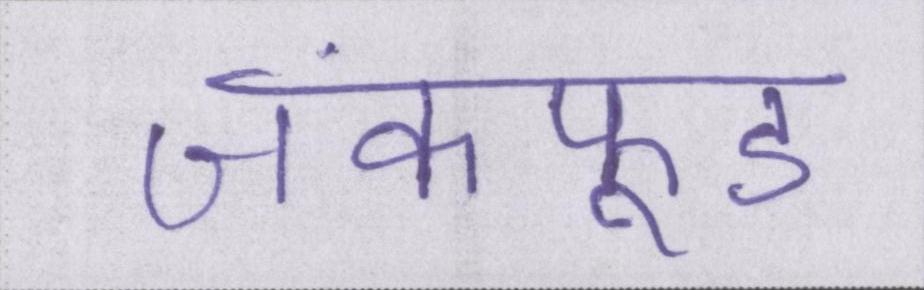 जंकफूड